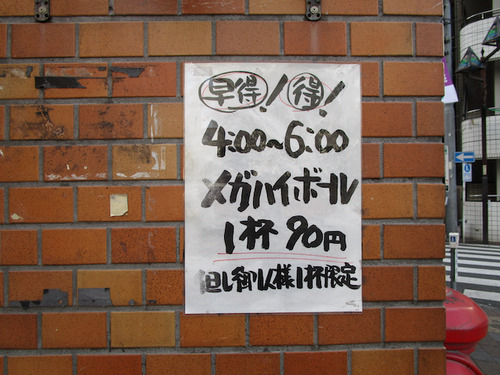 早得!得!
4:00~6:00
メガハイボール
1杯90円
但し御1人様1杯限定